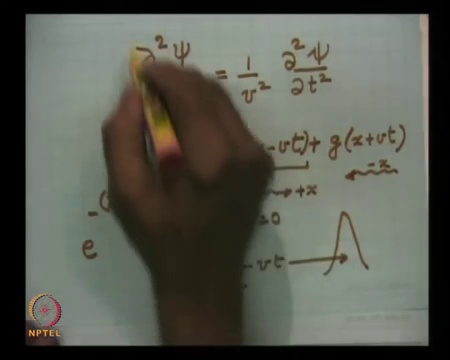 ∂²ψ = 1/v² ∂²ψ/∂t²
- vt) + g(x+vt)
→ +x ← -x
e^-( = 0
- vt →
NPTEL